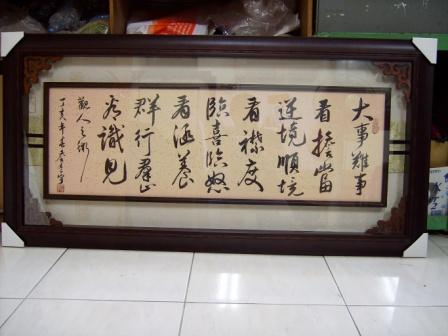 大事難事
看擔當
逆境順境
看襟度
臨喜臨怒
看涵養
群行羣止
看識見
觀人之術
丁亥年春